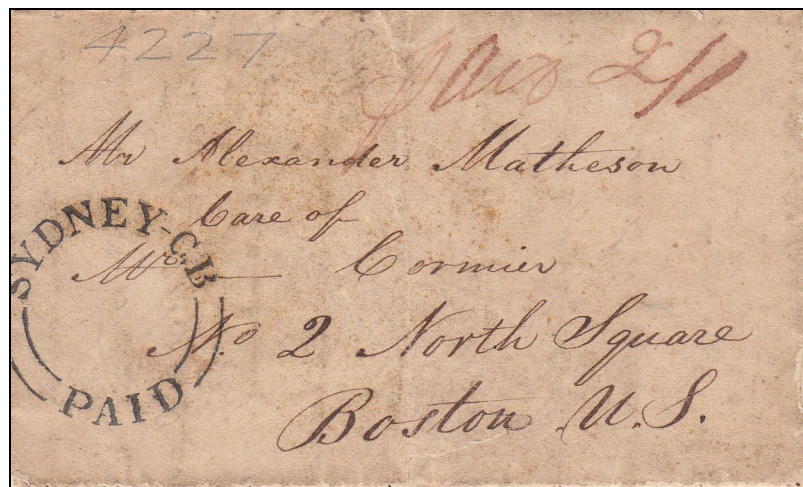 4227
Paid 2/1
Mr Alexander Matheson
Care of
Mr — Cormier
No 2 North Square
Boston U.S.
SYDNEY-C.B
PAID